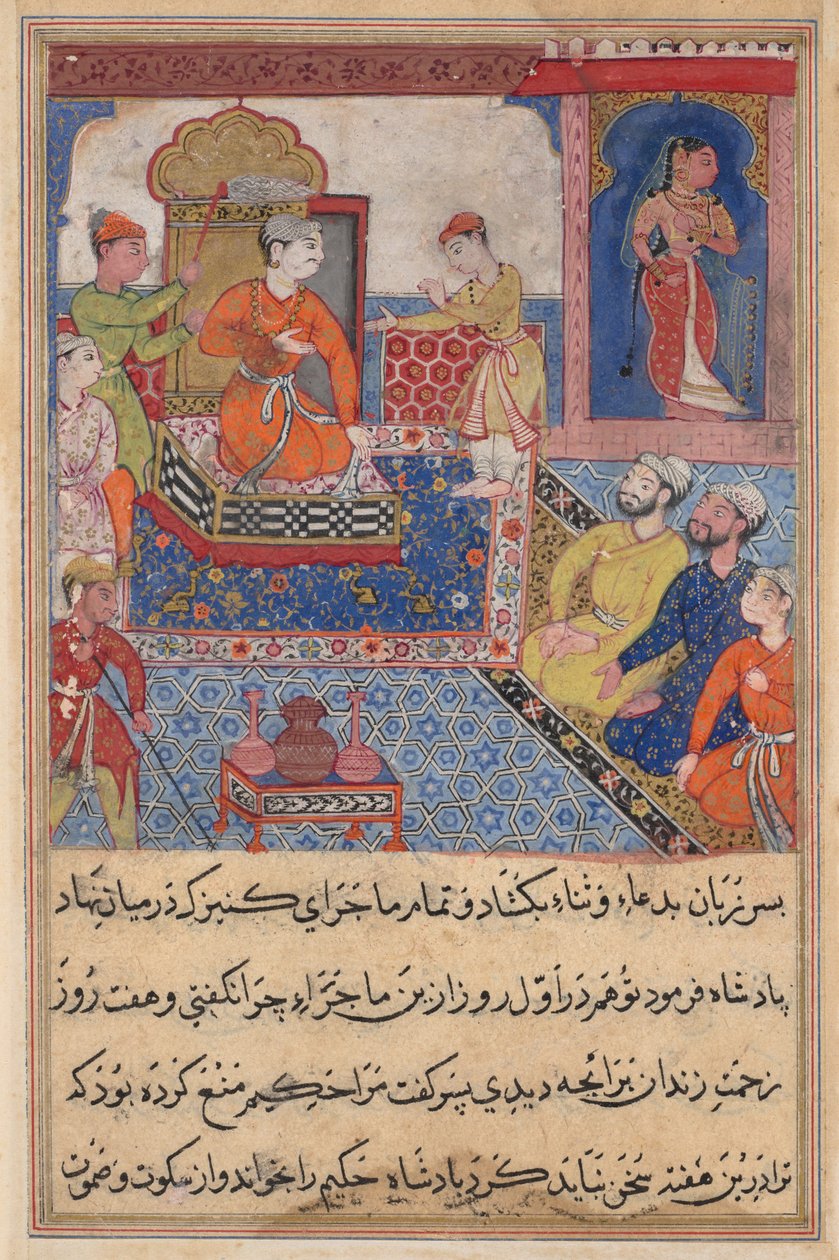 پسر زبان بدعاء و ثناء بکشاد و تمام ماجرای کنیزک در میان نهاد
پادشاه فرمود تو هم در اوّل روز ازین ماجراء چرا نکفتی و هفت روز
زحمت زندان برائجه دیدی پسر کفت مرا حکیم منع کرده بود که
ترا درین هفته سخن نباید کرد پادشاه حکیم را بخواند و از سکوت و صموت